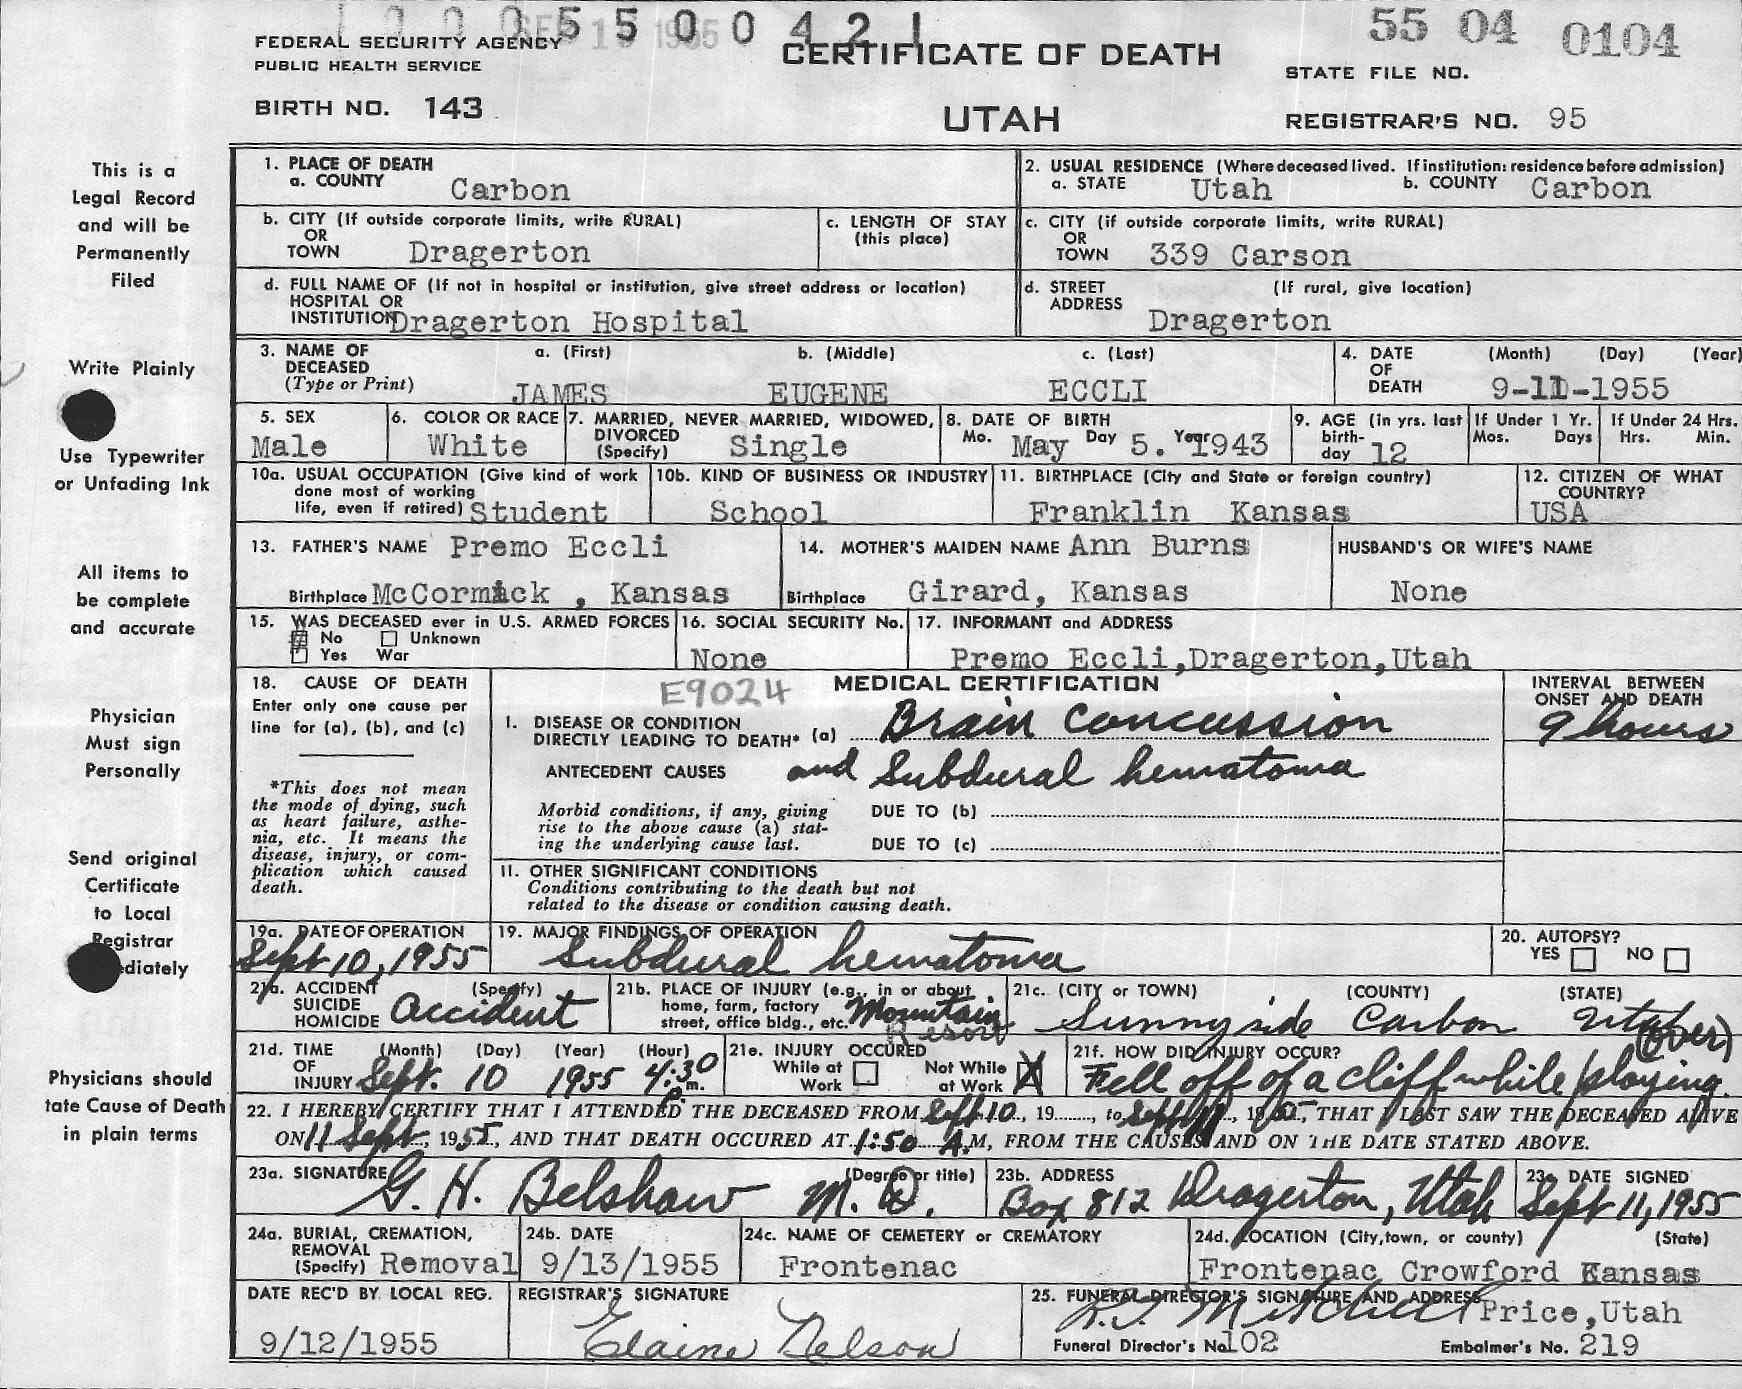 1 0 0 0 5 5 0 0 4 2 1
SEP 15 1955
55 04 0104
FEDERAL SECURITY AGENCY
PUBLIC HEALTH SERVICE
CERTIFICATE OF DEATH
STATE FILE NO.
BIRTH NO. 143
UTAH
REGISTRAR'S NO. 95
This is a
Legal Record
and will be
Permanently
Filed
Write Plainly
Use Typewriter
or Unfading Ink
All items to
be complete
and accurate
Physician
Must sign
Personally
Send original
Certificate
to Local
Registrar
diately
Physicians should
tate Cause of Death
in plain terms
1. PLACE OF DEATH
a. COUNTY Carbon
2. USUAL RESIDENCE (Where deceased lived. If institution: residence before admission)
a. STATE Utah b. COUNTY Carbon
b. CITY (If outside corporate limits, write RURAL)
OR
TOWN Dragerton
c. LENGTH OF STAY
(this place)
c. CITY (if outside corporate limits, write RURAL)
OR
TOWN 339 Carson
d. FULL NAME OF (If not in hospital or institution, give street address or location)
HOSPITAL OR
INSTITUTION Dragerton Hospital
d. STREET (If rural, give location)
ADDRESS
Dragerton
3. NAME OF DECEASED (Type or Print)
a. (First) b. (Middle) c. (Last)
JAMES EUGENE ECCLI
4. DATE OF DEATH (Month) (Day) (Year)
9-11-1955
5. SEX
Male
6. COLOR OR RACE
White
7. MARRIED, NEVER MARRIED, WIDOWED,
DIVORCED
(Specify) Single
8. DATE OF BIRTH
Mo. May Day 5. Year 1943
9. AGE (in yrs. last
birth-
day 12
If Under 1 Yr.
Mos. Days
If Under 24 Hrs.
Hrs. Min.
10a. USUAL OCCUPATION (Give kind of work
done most of working
life, even if retired) Student
10b. KIND OF BUSINESS OR INDUSTRY
School
11. BIRTHPLACE (City and State or foreign country)
Franklin Kansas
12. CITIZEN OF WHAT
COUNTRY?
USA
13. FATHER'S NAME Premo Eccli
Birthplace McCormick , Kansas
14. MOTHER'S MAIDEN NAME Ann Burns
Birthplace Girard, Kansas
HUSBAND'S OR WIFE'S NAME
None
15. WAS DECEASED ever in U.S. ARMED FORCES
No Unknown
Yes War
16. SOCIAL SECURITY No.
None
17. INFORMANT and ADDRESS
Premo Eccli,Dragerton,Utah
18. CAUSE OF DEATH
Enter only one cause per
line for (a), (b), and (c)
*This does not mean
the mode of dying, such
as heart failure, asthe-
nia, etc. It means the
disease, injury, or com-
plication which caused
death.
E9024
MEDICAL CERTIFICATION
INTERVAL BETWEEN
ONSET AND DEATH
I. DISEASE OR CONDITION
DIRECTLY LEADING TO DEATH* (a) Brain concussion
9 hours
ANTECEDENT CAUSES and Subdural hematoma
Morbid conditions, if any, giving
rise to the above cause (a) stat-
ing the underlying cause last.
DUE TO (b)
DUE TO (c)
11. OTHER SIGNIFICANT CONDITIONS
Conditions contributing to the death but not
related to the disease or condition causing death.
19a. DATE OF OPERATION
Sept 10, 1955
19. MAJOR FINDINGS OF OPERATION
Subdural hematoma
20. AUTOPSY?
YES NO
21a. ACCIDENT (Specify)
SUICIDE
HOMICIDE Accident
21b. PLACE OF INJURY (e.g., in or about
home, farm, factory
street, office bldg., etc. Mountain
Resort
21c. (CITY or TOWN) (COUNTY) (STATE)
Sunnyside Carbon Utah
(over)
21d. TIME OF INJURY (Month) (Day) (Year) (Hour)
Sept. 10 1955 4:30 P. m.
21e. INJURY OCCURED
While at Work
Not While at Work X
21f. HOW DID INJURY OCCUR?
Fell off of a cliff while playing.
22. I HEREBY CERTIFY THAT I ATTENDED THE DECEASED FROM Sept 10, 19......, to Sept 11, 1955, THAT I LAST SAW THE DECEASED ALIVE
ON 11 Sept, 1955, AND THAT DEATH OCCURED AT 1:50 A.M, FROM THE CAUSES AND ON THE DATE STATED ABOVE.
23a. SIGNATURE (Degree or title)
G. H. Belshaw M. D.
23b. ADDRESS
Box 812 Dragerton, Utah
23c. DATE SIGNED
Sept 11, 1955
24a. BURIAL, CREMATION,
REMOVAL
(Specify) Removal
24b. DATE
9/13/1955
24c. NAME OF CEMETERY or CREMATORY
Frontenac
24d. LOCATION (City, town, or county) (State)
Frontenac Crowford Kansas
DATE REC'D BY LOCAL REG.
9/12/1955
REGISTRAR'S SIGNATURE
Elaine Nelson
25. FUNERAL DIRECTOR'S SIGNATURE AND ADDRESS
Mitchell Price,Utah
Funeral Director's No. 102 Embalmer's No. 219